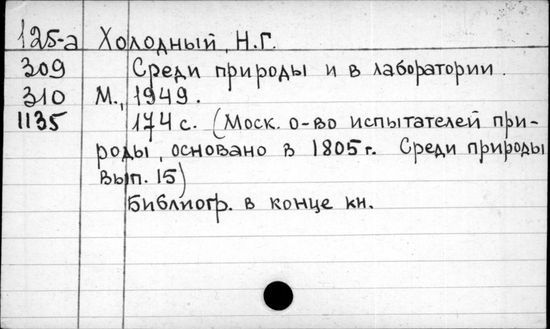 125-а Холодный, Н.Г.
309 Среди природы и в лаборатории.
310 М., 1949.
1135 174 с. (Моск. о-во испытателей при-
роды, основано в 1805г. Среди природы
вып. 15)
Библиогр. в конце кн.